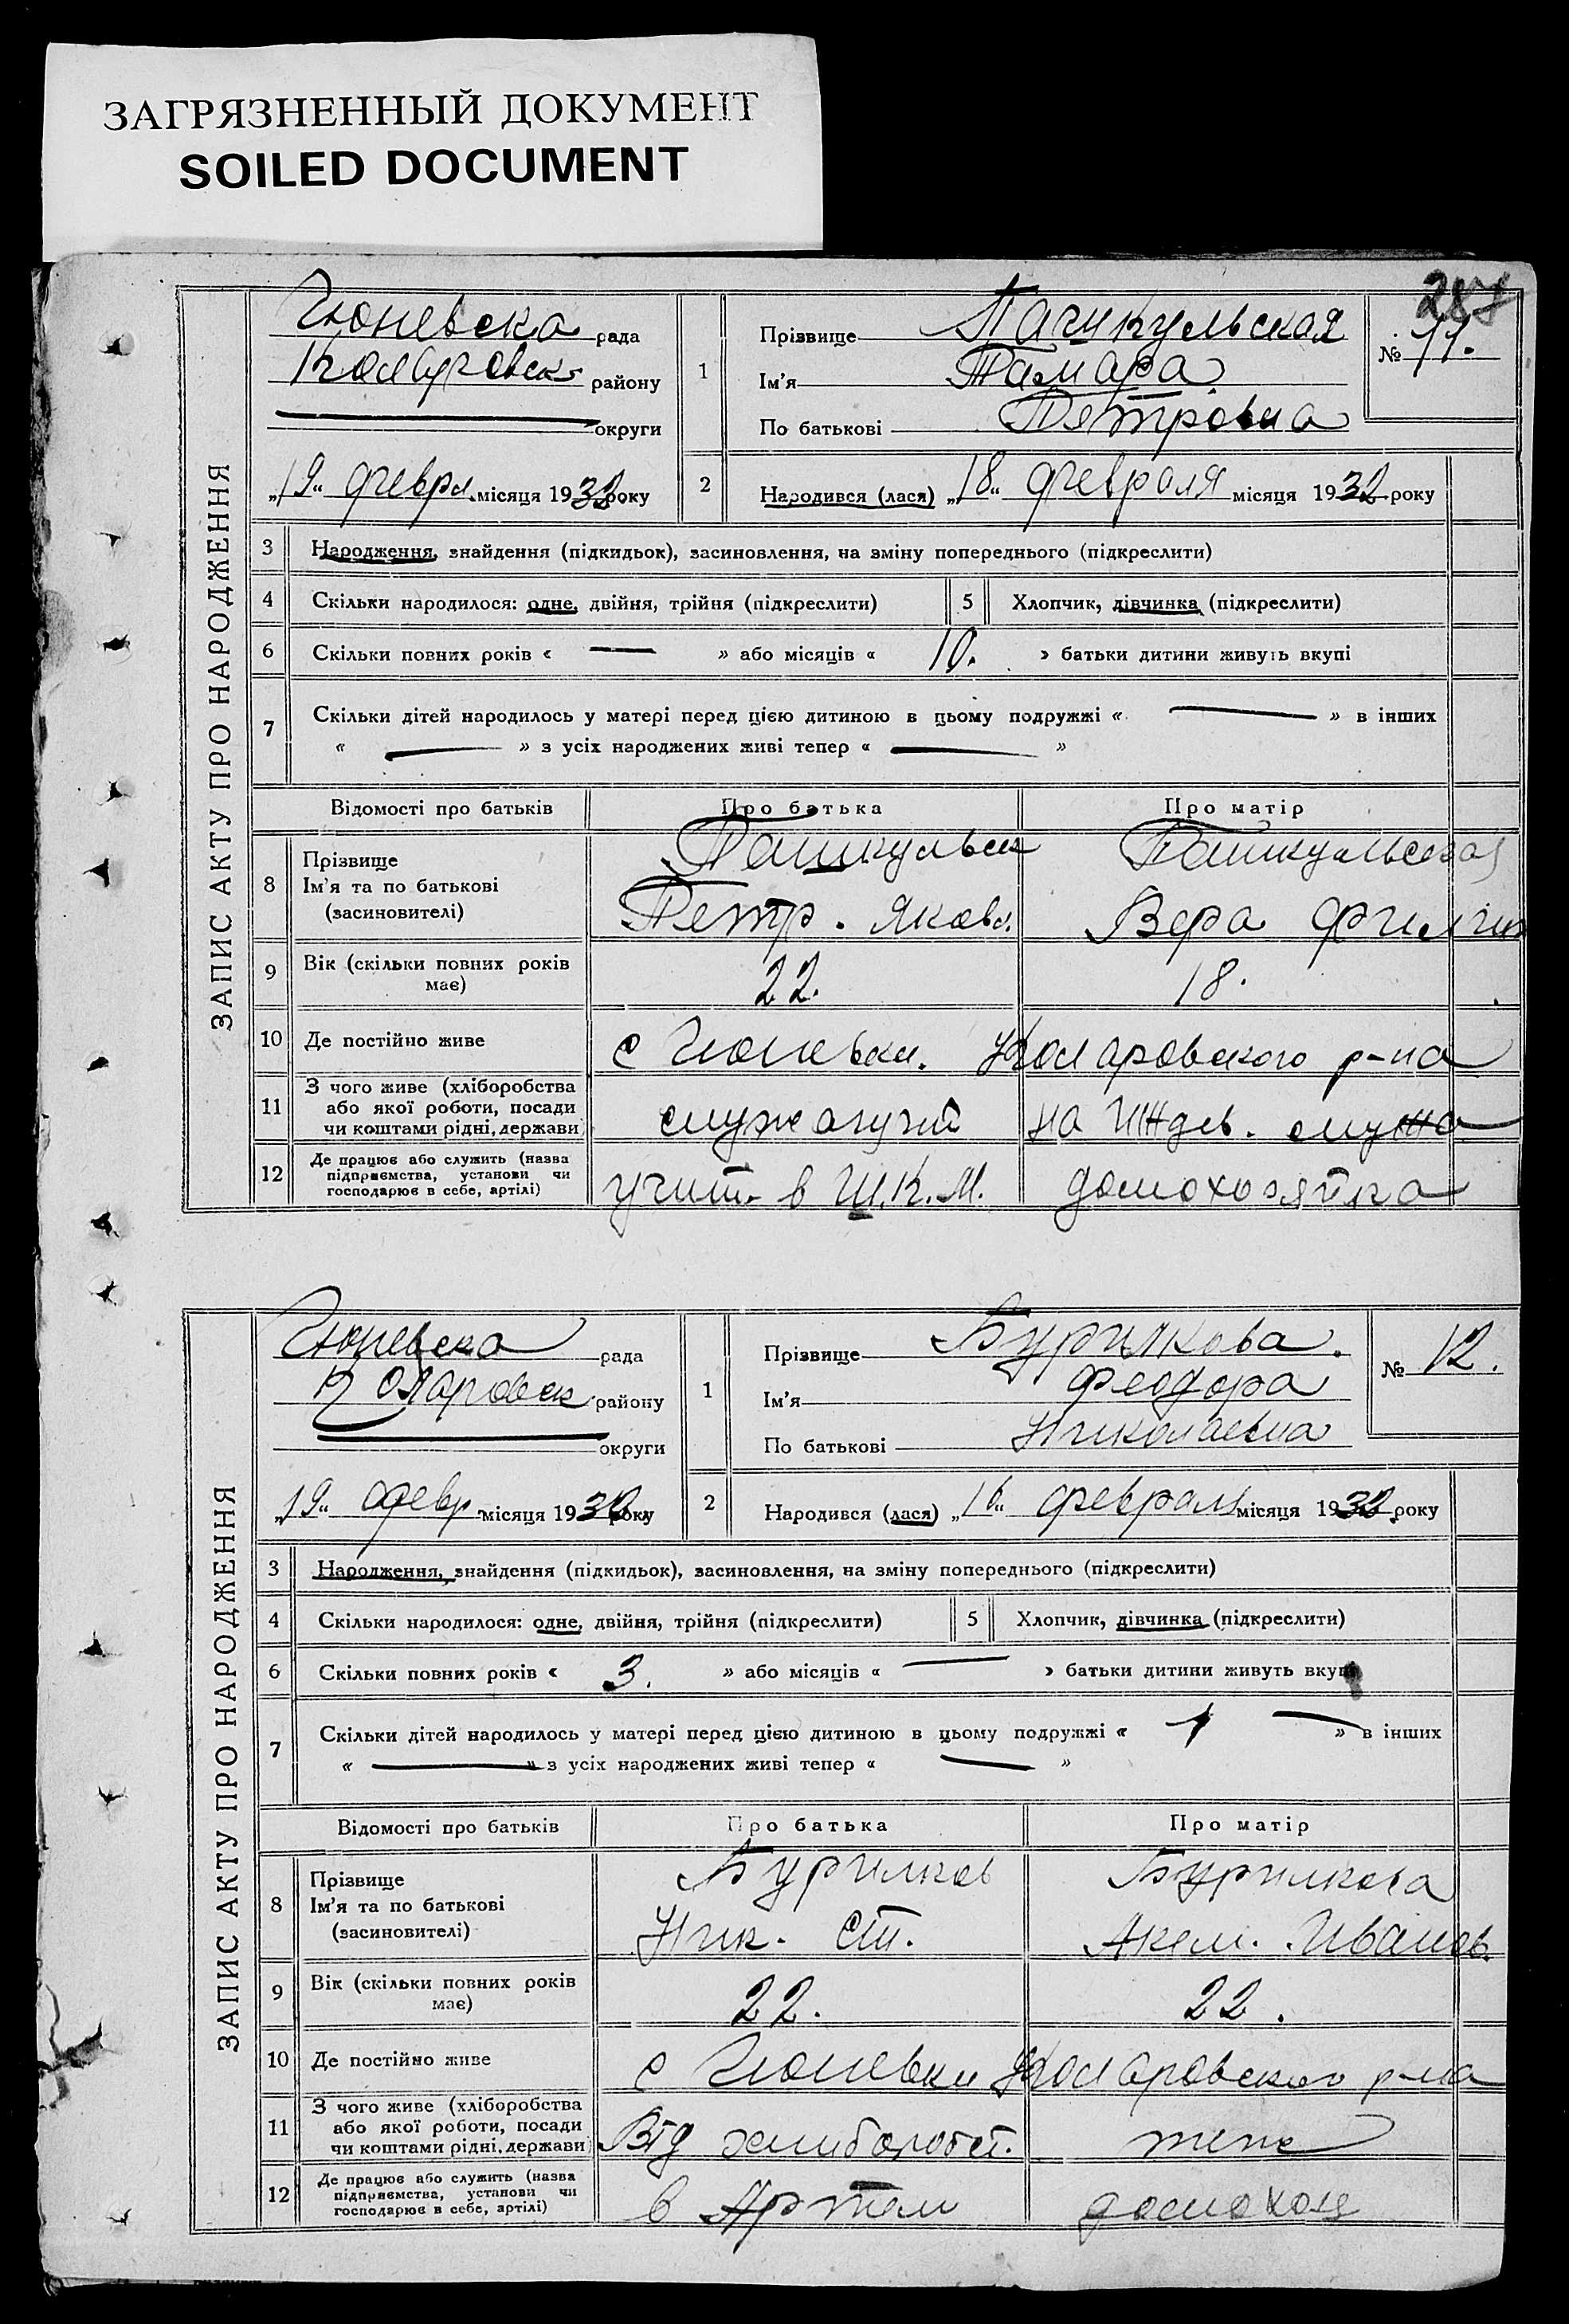 ЗАГРЯЗНЕННЫЙ ДОКУМЕНТ
SOILED DOCUMENT
ЗАПИС АКТУ ПРО НАРОДЖЕННЯ
Гюневска рада
Коларовск району
округи
„19“ февр. місяця 1932 року
1 Прізвище Пачикульская
Ім'я Тамара
По батькові Петровна
№ 11.
2 Народився (лася) „18“ февраля місяця 1932 року
3 Народження, знайдення (підкидьок), засиновлення, на зміну попереднього (підкреслити)
4 Скільки народилося: одне, двійня, трійня (підкреслити) 5 Хлопчик, дівчинка (підкреслити)
6 Скільки повних років « — » або місяців « 10. » батьки дитини живуть вкупі
7 Скільки дітей народилось у матері перед цією дитиною в цьому подружжі « — » в інших
« — » з усіх народжених живі тепер « — »
Відомості про батьків Про батька Про матір
8 Прізвище
Ім'я та по батькові
(засиновителі)
Пашкульск Пашкульская
Петр. Яковл. Вера
9 Вік (скільки повних років має) 22. 18.
10 Де постійно живе с Гюневки. Коларовского р-на
11 З чого живе (хліборобства
або якої роботи, посади
чи коштами рідні, держави)
служащий на иждев. мужа
12 Де працює або служить (назва
підприємства, установи чи
господарює в себе, артілі)
учит. в Ш.К.М. домохозяйка
ЗАПИС АКТУ ПРО НАРОДЖЕННЯ
Гюневска рада
Коларовск району
округи
„19“ февр місяця 1932 року
1 Прізвище Бурилкова.
Ім'я Феодора
По батькові Николаевна
№ 12.
2 Народився (лася) „16“ февраля місяця 1932 року
3 Народження, знайдення (підкидьок), засиновлення, на зміну попереднього (підкреслити)
4 Скільки народилося: одне, двійня, трійня (підкреслити) 5 Хлопчик, дівчинка (підкреслити)
6 Скільки повних років « 3. » або місяців « — » батьки дитини живуть вкупі
7 Скільки дітей народилось у матері перед цією дитиною в цьому подружжі « 1 — » в інших
« — » з усіх народжених живі тепер « — »
Відомості про батьків Про батька Про матір
8 Прізвище
Ім'я та по батькові
(засиновителі)
Бурилков Бурилкова
Ник. Ст. Акел. Иванов.
9 Вік (скільки повних років має) 22. 22.
10 Де постійно живе с Гюневки Коларовского р-на
11 З чого живе (хліборобства
або якої роботи, посади
чи коштами рідні, держави)
Від хлиборобст. тоже
12 Де працює або служить (назва
підприємства, установи чи
господарює в себе, артілі)
в Артели домохоз